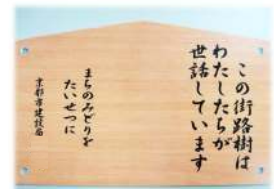 この街路樹は
わたしたちが
世話しています
まちのみどりを
たいせつに
京都市建設局